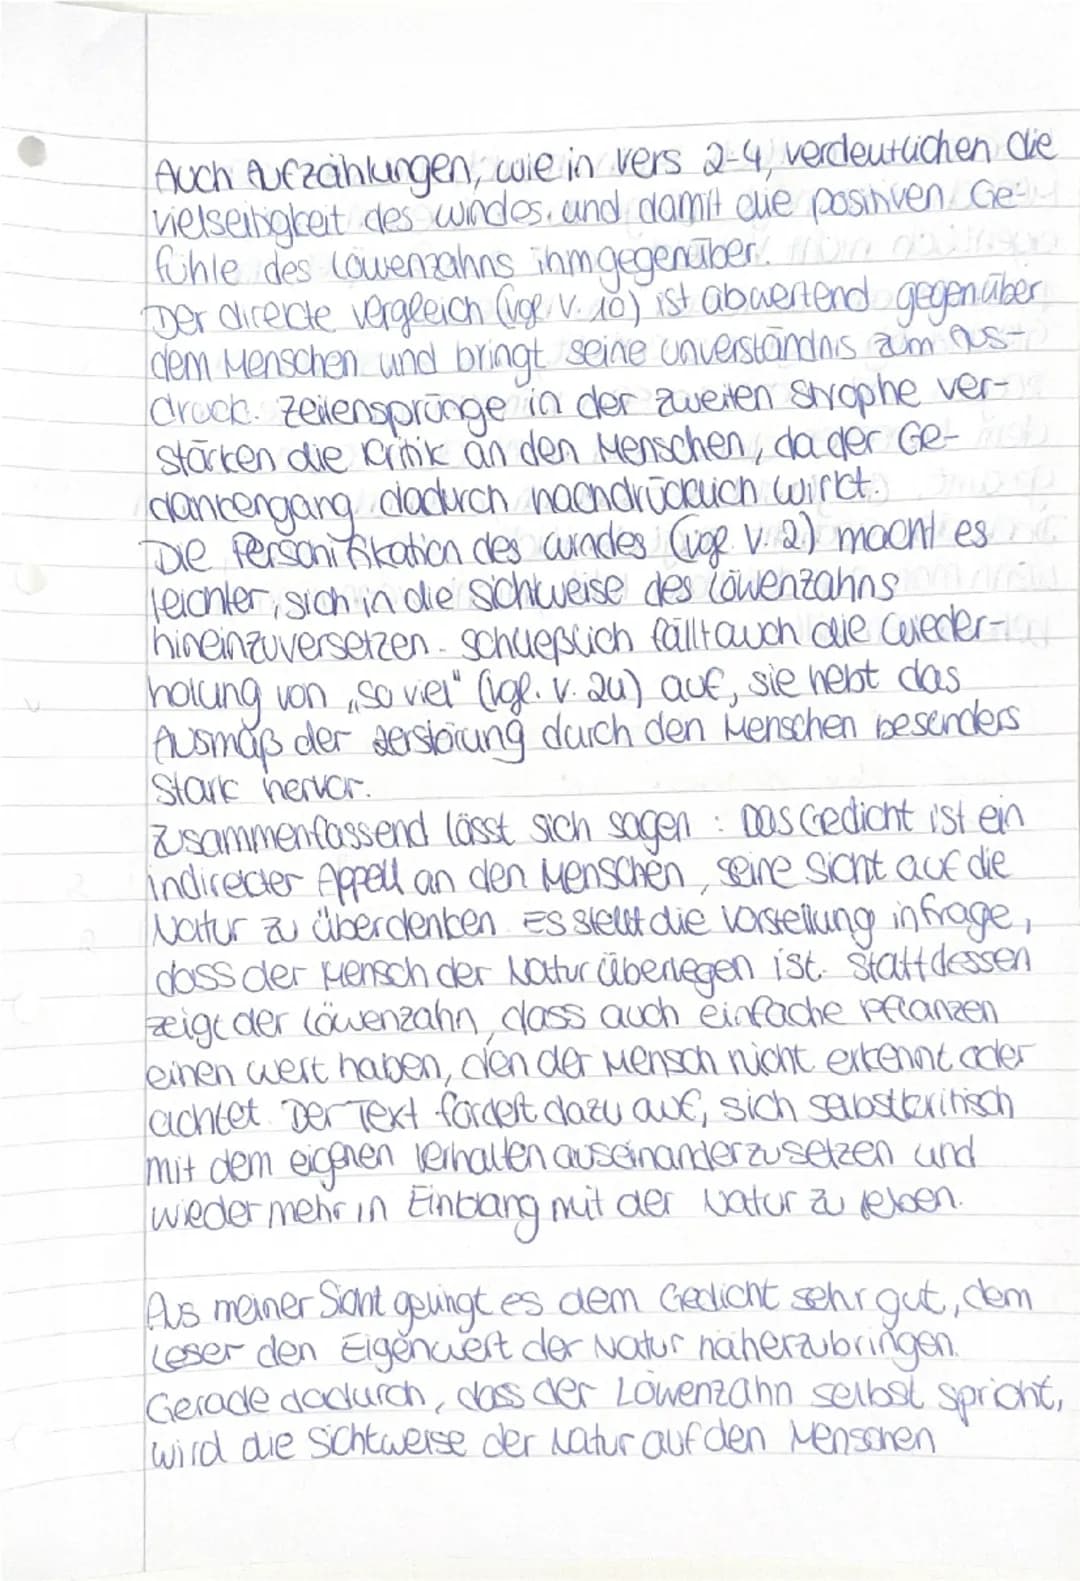 Auch Aufzählungen, wie in Vers 2-4, verdeutlichen die
Vielseitigkeit des Windes, und damit die positiven Ge-
fühle des Löwenzahns ihm gegenüber.
Der direkte Vergleich (vgl. V. 10) ist abwertend gegenüber
dem Menschen und bringt seine Unverständnis zum Aus-
druck. Zeilensprünge in der zweiten Strophe ver-
stärken die Kritik an den Menschen, da der Ge-
dankengang dadurch nachdrücklich wirkt.
Die Personifikation des Windes (vgl. V. 2) macht es
leichter, sich in die Sichtweise des Löwenzahns
hineinzuversetzen. Schließlich fällt auch die Wieder-
holung von „So viel" (vgl. V. 24) auf, sie hebt das
Ausmaß der Zerstörung durch den Menschen besonders
stark hervor.
Zusammenfassend lässt sich sagen: Das Gedicht ist ein
indirekter Appell an den Menschen, seine Sicht auf die
Natur zu überdenken. Es stellt die Vorstellung infrage,
dass der Mensch der Natur überlegen ist. Stattdessen
zeigt der Löwenzahn, dass auch einfache Pflanzen
einen Wert haben, den der Mensch nicht erkennt oder
achtet. Der Text fordert dazu auf, sich selbstkritisch
mit dem eigenen Verhalten auseinanderzusetzen und
wieder mehr in Einklang mit der Natur zu leben.
Aus meiner Sicht gelingt es dem Gedicht sehr gut, dem
Leser den Eigenwert der Natur näherzubringen.
Gerade dadurch, dass der Löwenzahn selbst spricht,
wird die Sichtweise der Natur auf den Menschen